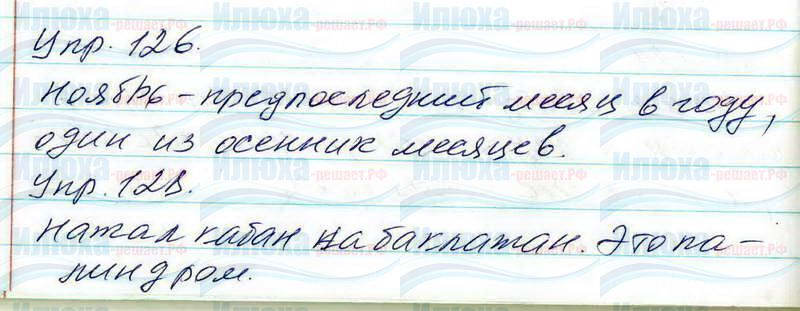 Упр. 126.
Ноябрь – предпоследний месяц в году,
один из осенних месяцев.
Упр. 128.
Нажал кабан на баклажан. Это па-
линдром.